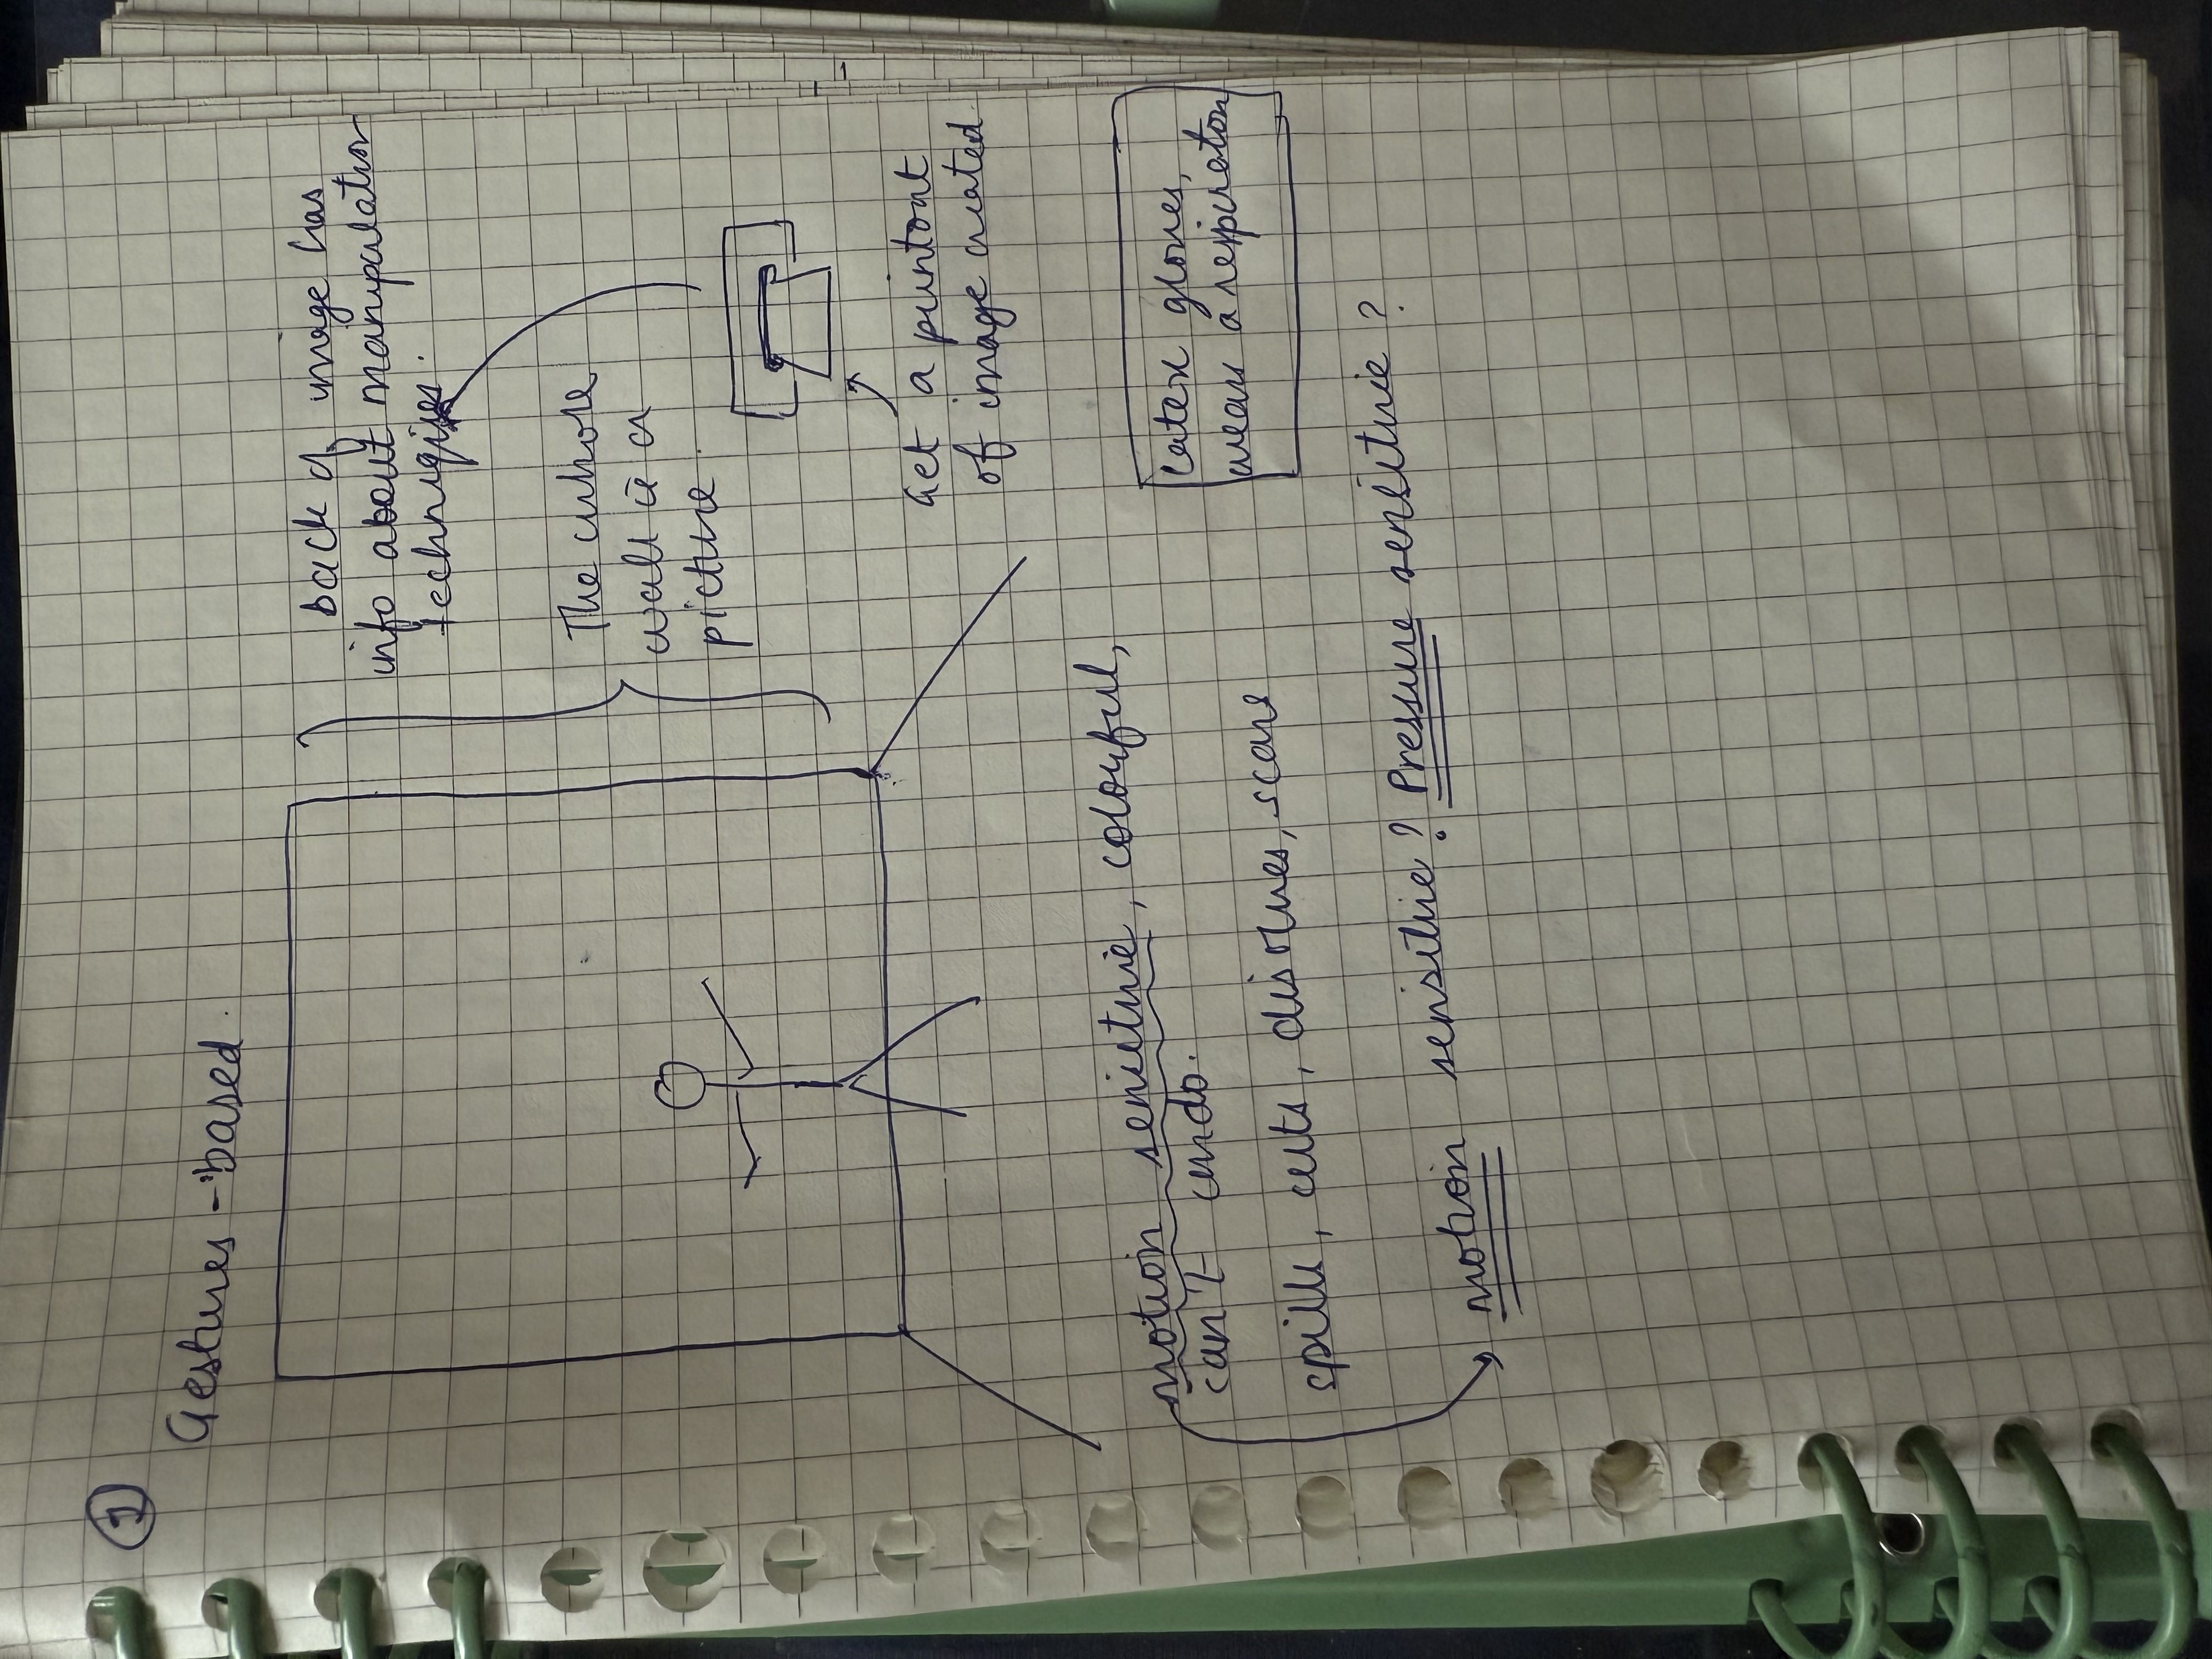 2
Gestures - based.
back of image has
info about manipulation
techniques.
The whole
wall is a
picture.
Get a printout
of image created.
Latex gloves,
wear a respirator
motion sensitive, colourful,
can't undo.
spills, cuts, dissolves, scars
motion sensitive? Pressure sensitive?